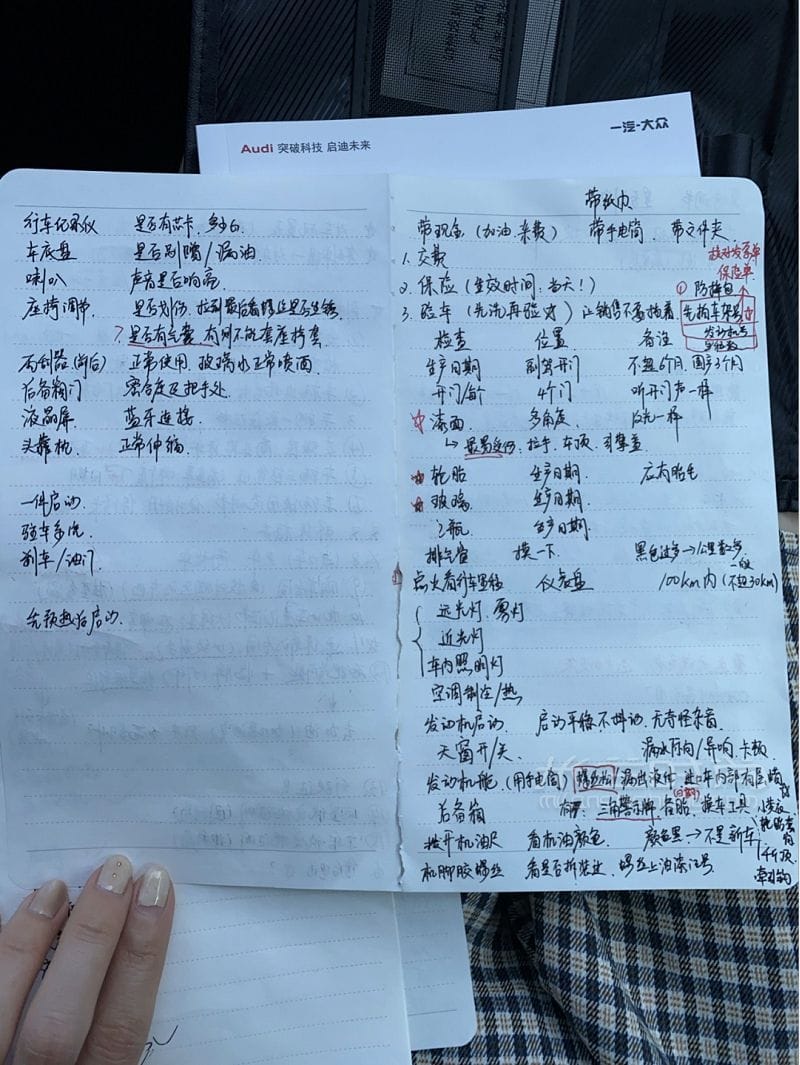 Audi 突破科技 启迪未来
一汽-大众
行车记录仪 是否有芯卡,
车底盘 是否剐蹭/漏油
喇叭 声音是否响亮
座椅调节 是否划伤, 拉到最后看螺丝是否生锈
? 是否有气囊, 有则不能套座椅套
雨刮器(前后) 正常使用, 玻璃水正常喷洒
后备箱门 密合度及把手处
液晶屏 蓝牙连接
头靠枕 正常伸缩
一件启动
验车多
刹车/油门
先预热后启动
带纸巾
带现金(加油,来款) 带手电筒 带文件夹
1. 交款
核对发票单
保险单
2. 保险(生效时间:当天!)
① 防掉包
3. 验车(先洗再验对) 让销售不要抽着
先拍车架号
发动机号
检查 位置 备注
生产日期 副驾开门 不超6个月, 国产3个月
开门/每个 4个门 听开门声一样
☆ 漆面 多角度 反光一样
↳ 最易受伤, 拉手, 车顶, 引擎盖
☆ 轮胎 生产日期 应有胎毛
☆ 玻璃 生产日期
电瓶 生产日期
排气管 摸一下 黑色过多→公里数多
点火看行车里程 仪表盘 100km内(一般不超30km)
远光灯, 雾灯
近光灯
车内照明灯
空调制冷/热
发动机启动 启动平稳不抖动, 无奇怪杂音
天窗开/关 漏水作响/异响,卡顿
发动机舱 (用手电筒) 螺丝 /漏出液体
后备箱 有: 三角警示牌, 备胎(日期), 换车工具
千斤顶
牵引钩
拨开机油尺 看机油颜色 颜色黑→不是新车
机脚胶螺丝 看是否拆装过, 螺丝上油漆记号